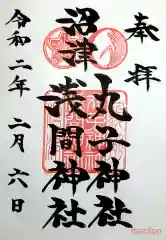 奉拝
丸子神社
沼津
浅間神社
令和二年二月六日
macllon